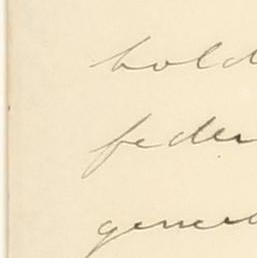 hold
feder
genera